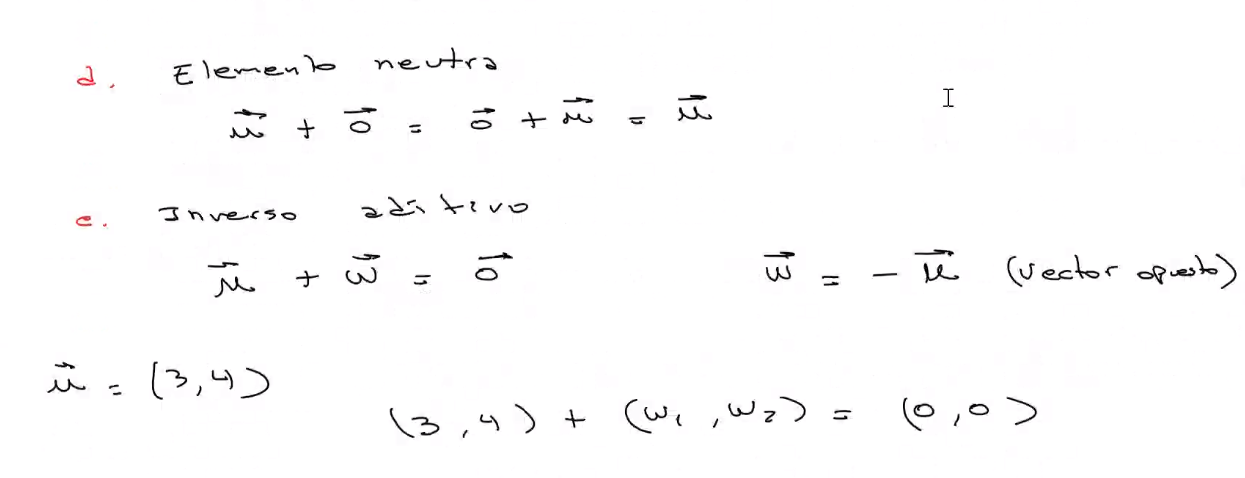 d. Elemento neutra
u⃗ + 0⃗ = 0⃗ + u⃗ = u⃗
e. Inverso aditivo
u⃗ + w⃗ = 0⃗ w⃗ = - u⃗ (vector opuesto)
u⃗ = (3,4)
(3,4) + (w₁,w₂) = (0,0)